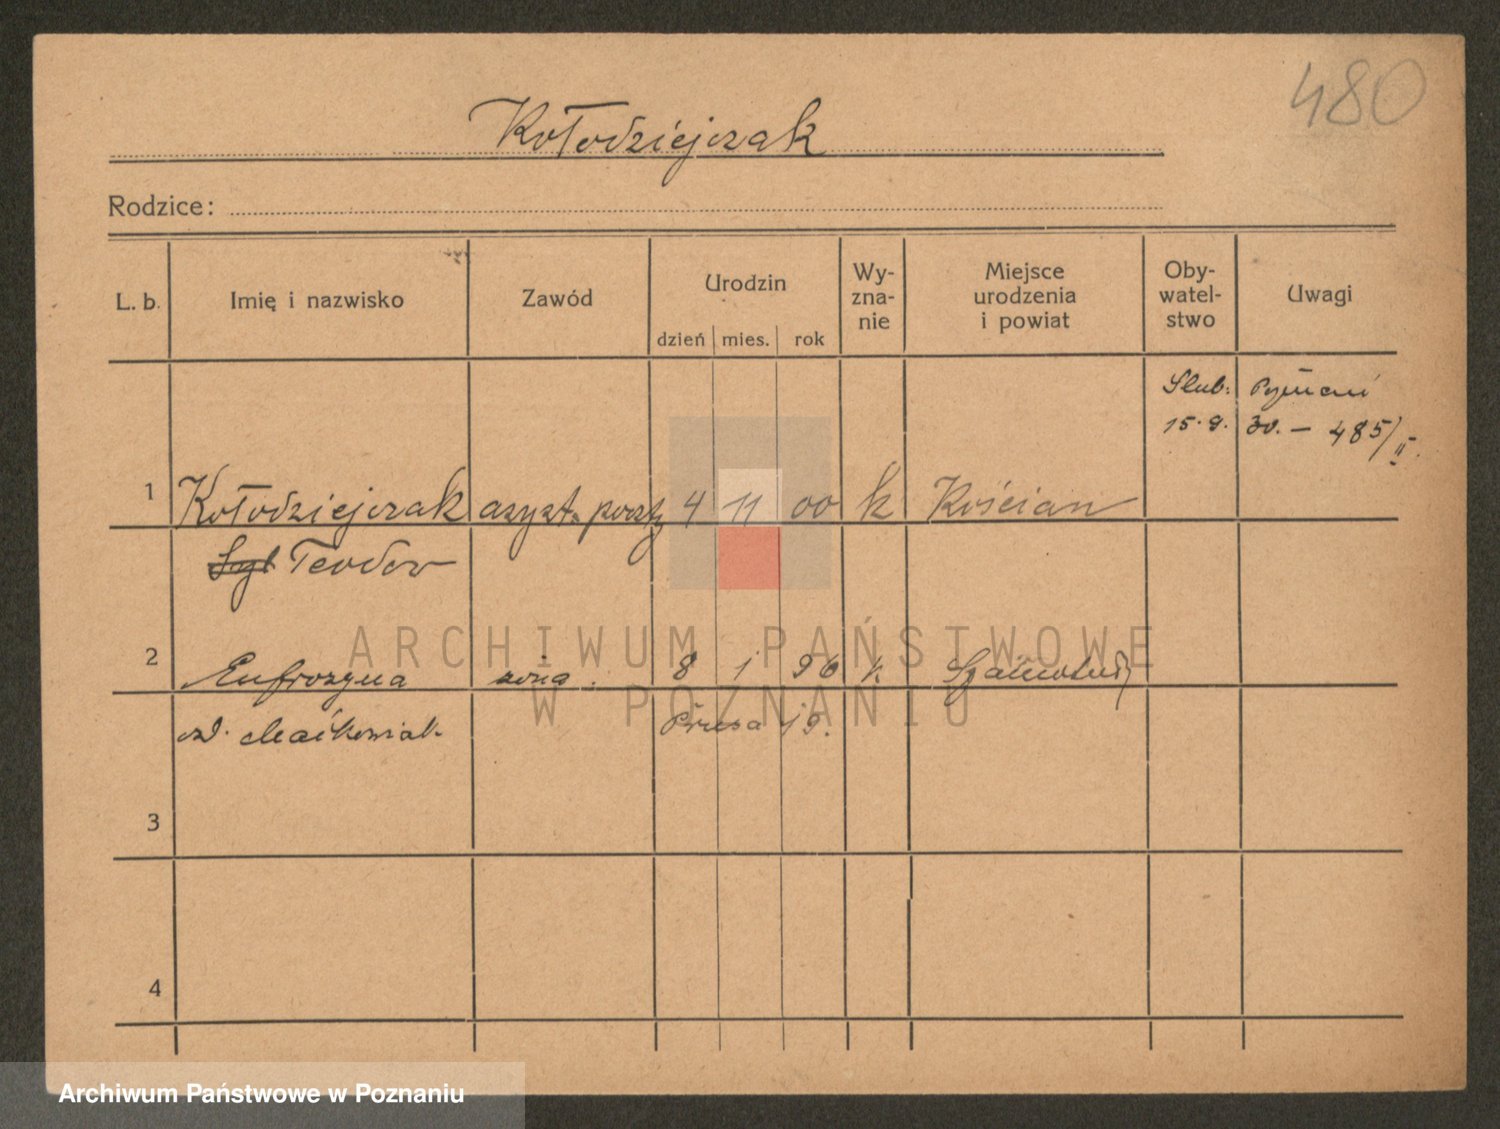 480
Kołodziejczak
Rodzice:
L. b. Imię i nazwisko Zawód Urodzin Wy-zna-nie Miejsce urodzenia i powiat Oby-watel-stwo Uwagi
dzień mies. rok
Slub:
15.9. 30. — 485/II.
1 Kołodziejczak asyst. poczt. 4 11 00 k Kościan
Teodor
2 Eufrozyna żona. 8 1 96 k. Szamotuły
zd. Maćkowiak
3
4
ARCHIWUM PAŃSTWOWE
W POZNANIU
Archiwum Państwowe w Poznaniu